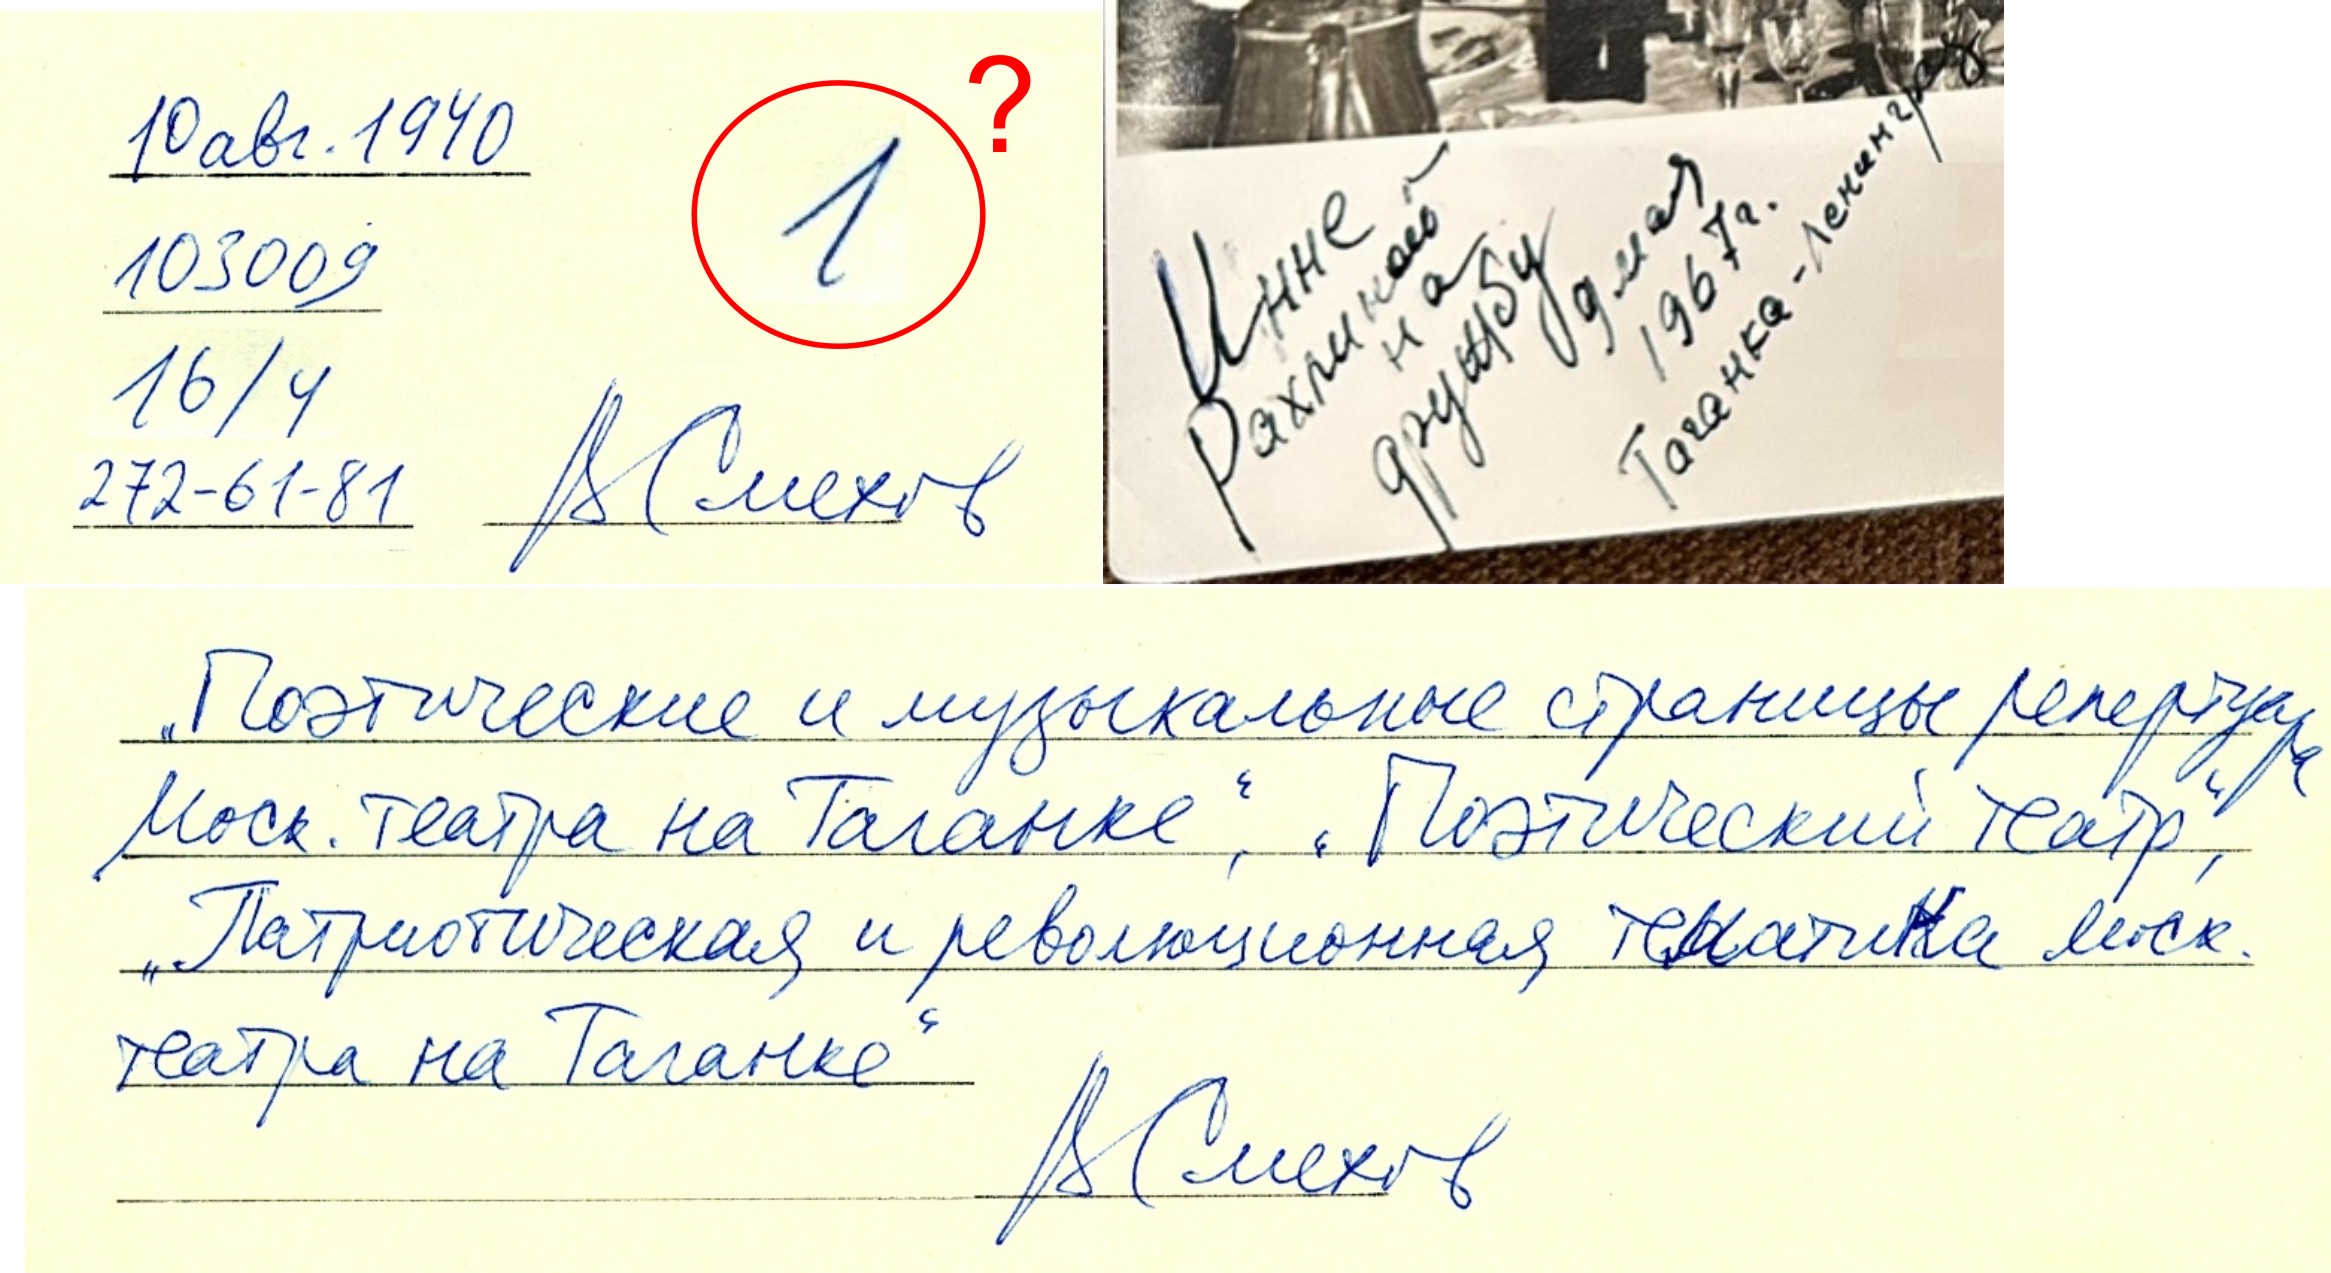 10 авг. 1940
103009
16/4
272-61-81
1
?
ВСмехов
Инне
Рахлиной
на
дружбу
9 мая
1967г.
Таганка-Ленинград
„Поэтические и музыкальные страницы репертуара
Моск. театра на Таганке“, „Поэтический театр“,
„Патриотическая и революционная тематика Моск.
театра на Таганке“
ВСмехов